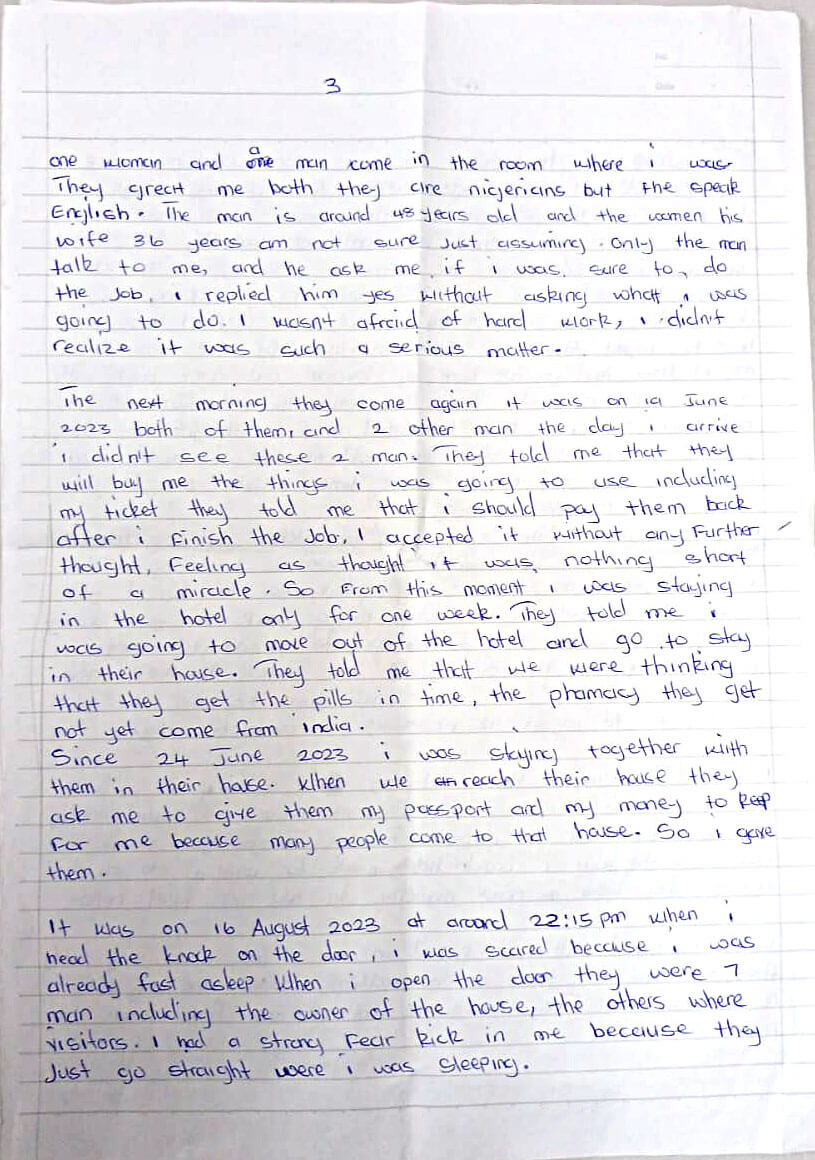 3
one woman and a man come in the room where i was
They greet me both they are nigerians but the speak
English. The man is around 48 years old and the women his
wife 36 years am not sure Just assuming. Only the man
talk to me, and he ask me if i was sure to do
the Job, i replied him yes without asking what i was
going to do. I wasn't afraid of hard work, i didn't
realize it was such a serious matter.
The next morning they come again it was on 19 June
2023 both of them, and 2 other man the day i arrive
i didn't see these 2 man. They told me that they
will buy me the things i was going to use including
my ticket they told me that i should pay them back
after i finish the Job, I accepted it without any Further
thought, Feeling as thought it was nothing short
of a miracle. So From this moment i was staying
in the hotel only for one week. They told me i
was going to move out of the hotel and go to stay
in their house. They told me that we were thinking
that they get the pills in time, the phamacy they get
not yet come from india.
Since 24 June 2023 i was staying together with
them in their house. When we reach their house they
ask me to give them my passport and my money to keep
For me because many people come to that house. So i gave
them.
It was on 16 August 2023 at around 22:15 pm when i
head the knock on the door, i was scared because i was
already fast asleep When i open the door they were 7
man including the owner of the house, the others where
visitors. I had a strong Fear kick in me because they
Just go straight were i was sleeping.